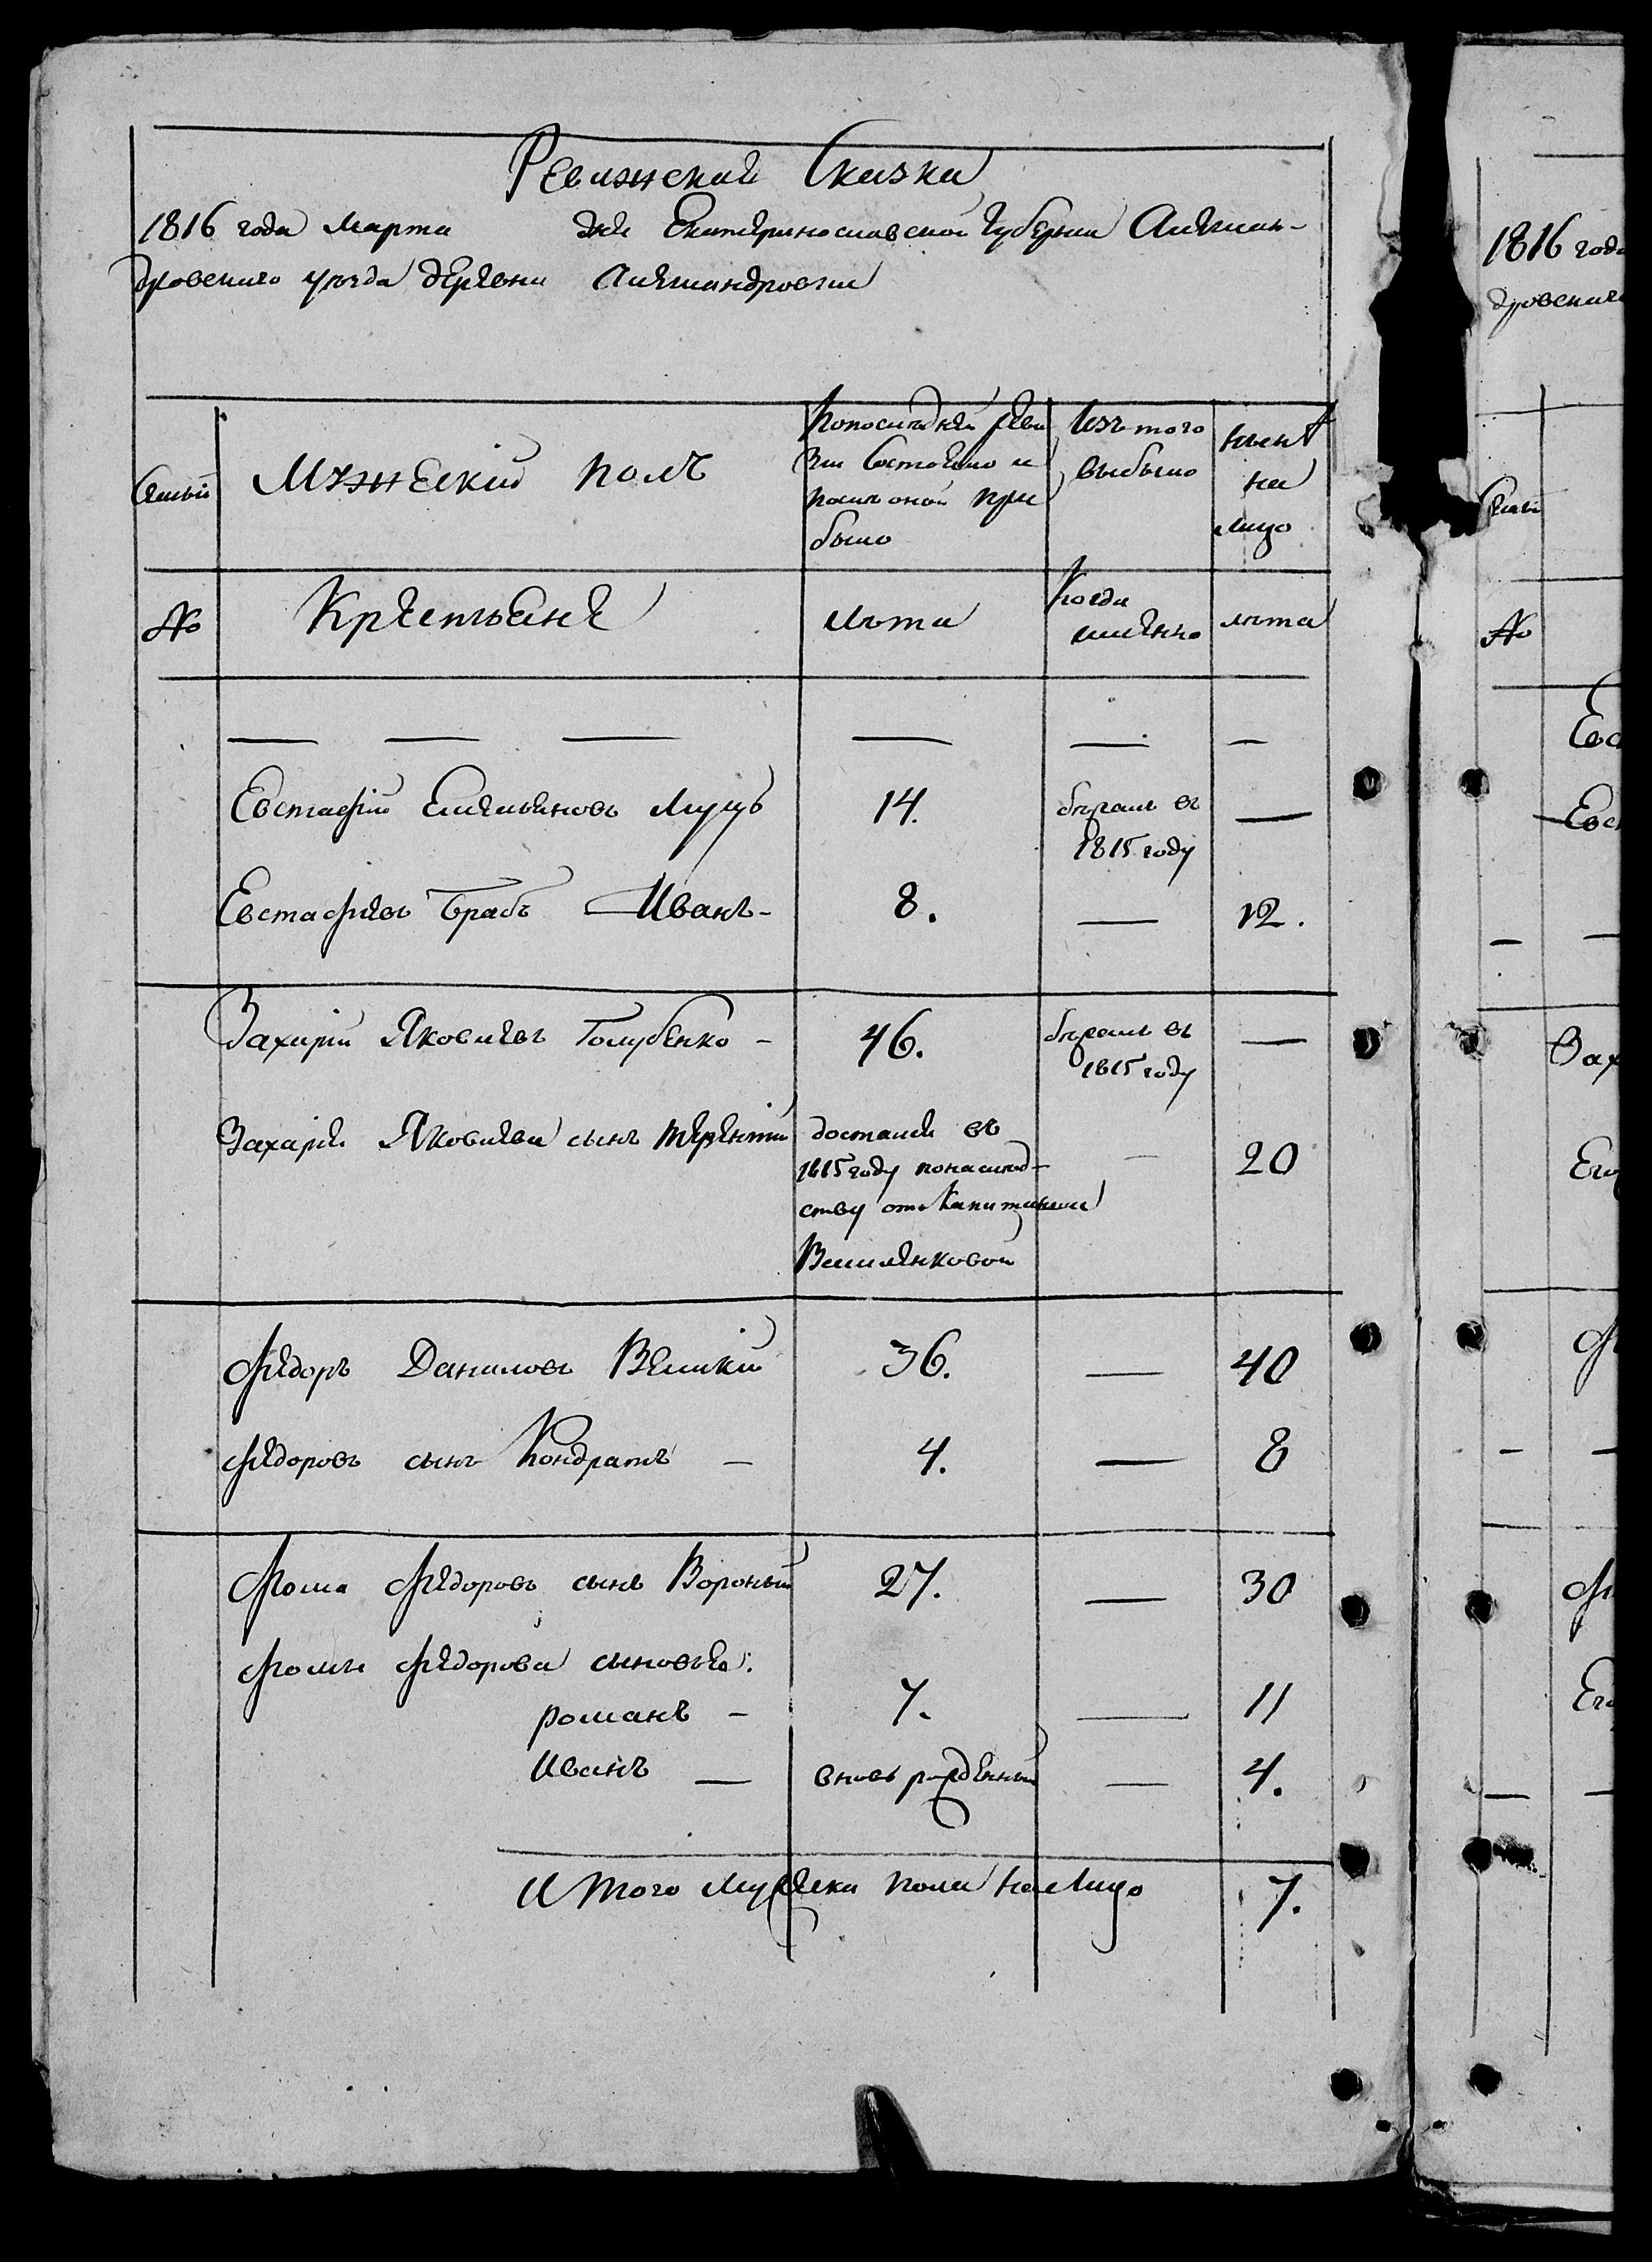 Ревижская Сказка
1816 года Марта дня Екатеринославской губернии Алексан-
дровскаго уезда деревни Александровки
Семьи
Мужеский полъ
Попоследней реви
зии Состояло и
после оной при
было
Изъ того
выбыло
Ныне
на
лицо
№
Крестьяне
лета
Когда
имянно
лета
— — — — — —
Евстафий Емельяновъ Муцъ 14. беглые въ —
1815 году
Евстафиевъ братъ Иванъ - 8. — 12.
Захарий Яковлевъ Голубенко - 46. беглые въ —
1815 году
Захария Яковлева сынъ терентий достался въ — 20
1815 году понаслед-
ству от Капитанши
Федоръ Даниловъ Великий 36. — 40
Федоровъ сынъ Кондратъ - 4. — 8
Фома Федоровъ сынъ Вороный 27. — 30
Фомы Федорова сыновья:
романъ - 7. — 11
Иванъ — вновь рожденный — 4.
Итого мужеска пола налицо 7.
1816 года
дровскаго
Семьи
№
Евс
Евс
Зах
Его
Ф
Ф
Его